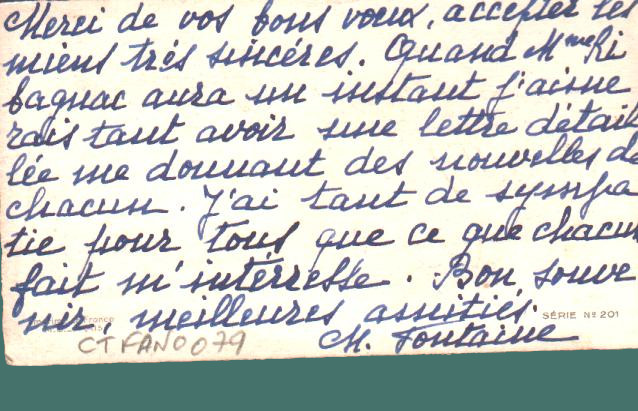 Merci de vos bons vœux, accepter les
miens trés sincéres. Quand Mme Ri
bagnac aura un instant j'aime
rais tant avoir une lettre détail
lée me donnant des nouvelles de
chacun. J'ai tant de sympa
tie pour tous que ce que chacun
fait m'intérresse. Bon souve
nir, meilleures amitiés.
SÉRIE Nº 201
CTFAN0079 M. Fontaine